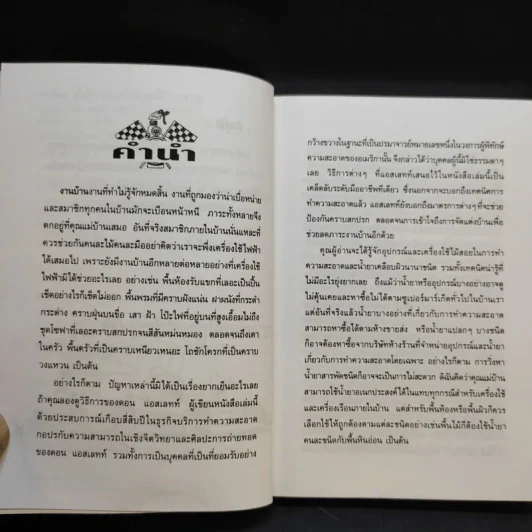 คำนำ
งานบ้านงานที่ทำไม่รู้จักหมดสิ้น งานที่ถูกมองว่าน่าเบื่อหน่าย
และสมาชิกทุกคนในบ้านมักจะเบือนหน้าหนี ภาระทั้งหลายจึง
ตกอยู่ที่คุณแม่บ้านเสมอ อันที่จริงสมาชิกภายในบ้านนั่นแหละที่
ควรช่วยกันคนละไม้คนละมืออย่าคิดว่าเราจะพึ่งเครื่องใช้ไฟฟ้า
ได้เสมอไป เพราะยังมีงานบ้านอีกหลายต่อหลายอย่างที่เครื่องใช้
ไฟฟ้ามิได้ช่วยอะไรเลย อย่างเช่น พื้นห้องรับแขกที่เลอะเป็นปื้น
เช็ดอย่างไรก็เช็ดไม่ออก พื้นพรมที่มีคราบฝังแน่น ฝาผนังที่กระดำ
กระด่าง คราบฝุ่นบนชื่อ เสา ฝ้า โป๊ะไฟที่อยู่บนที่สูงเอื้อมไม่ถึง
ชุดโซฟาที่เลอะคราบสกปรกจนสีสันหม่นหมอง ตลอดจนถึงเตา
ในครัว พื้นครัวที่เป็นคราบเหนียวเหนอะ โถชักโครกที่เป็นคราบ
วงแหวน เป็นต้น
อย่างไรก็ตาม ปัญหาเหล่านี้มิได้เป็นเรื่องยากเย็นอะไรเลย
ถ้าคุณลองดูวิธีการของดอน แอสเลทท์ ผู้เขียนหนังสือเล่มนี้
ด้วยประสบการณ์เกือบสี่สิบปีในธุรกิจบริการทำความสะอาด
กอปรกับความสามารถในเชิงจิตวิทยาและศิลปะการถ่ายทอด
ของดอน แอสเลทท์ รวมทั้งการเป็นบุคคลที่เป็นที่ยอมรับอย่าง
กว้างขวางในฐานะที่เป็นปรมาจารย์หมายเลขหนึ่งในวงการผู้พิทักษ์
ความสะอาดของอเมริกานั้น จึงกล่าวได้ว่าบุคคลผู้นี้มิใช่ธรรมดาๆ
เลย วิธีการต่างๆ ที่แอสเลทท์เสนอไว้ในหนังสือเล่มนี้จึงเป็น
เคล็ดลับระดับมืออาชีพทีเดียว ซึ่งนอกจากจะบอกถึงเทคนิคการ
ทำความสะอาดแล้ว แอสเลทท์ยังบอกถึงมาตรการต่างๆ ที่จะช่วย
ป้องกันคราบสกปรก ตลอดจนการเข้าใจถึงการจัดแต่งบ้านเพื่อ
ช่วยลดภาระงานบ้านอีกด้วย
คุณผู้อ่านจะได้รู้จักอุปกรณ์และเครื่องใช้ไม้สอยในการทำ
ความสะอาดและน้ำยาเคลือบผิวนานาชนิด รวมทั้งเทคนิคน่ารู้ที่
ไม่มีอะไรยุ่งยากเลย ถึงแม้ว่าน้ำยาหรืออุปกรณ์บางอย่างอาจดู
ไม่คุ้นเคยและหาซื้อไม่ได้ตามซูเปอร์มาร์เก็ตทั่วไปในบ้านเรา
แต่อันที่จริงแล้วน้ำยาบางอย่างที่เกี่ยวกับการทำความสะอาด
สามารถหาซื้อได้ตามห้างขายส่ง หรือน้ำยาแปลกๆ บางชนิด
ก็อาจต้องหาซื้อจากบริษัทห้างร้านที่จำหน่ายอุปกรณ์และน้ำยา
เกี่ยวกับการทำความสะอาดโดยเฉพาะ อย่างไรก็ตาม การวิ่งหา
น้ำยาสารพัดชนิดก็อาจจะเป็นการไม่สะดวก ดิฉันคิดว่าคุณแม่บ้าน
สามารถใช้น้ำยาอเนกประสงค์ได้ในแทบทุกกรณี สำหรับเครื่องใช้
และเครื่องเรือนภายในบ้าน แต่สำหรับพื้นห้องหรือพื้นผิวก็ควร
เลือกใช้ให้ถูกต้องตามแต่ละชนิดอย่างเช่นพื้นไม้ก็ต้องใช้น้ำยา
คนละชนิดกับพื้นหินอ่อน เป็นต้น